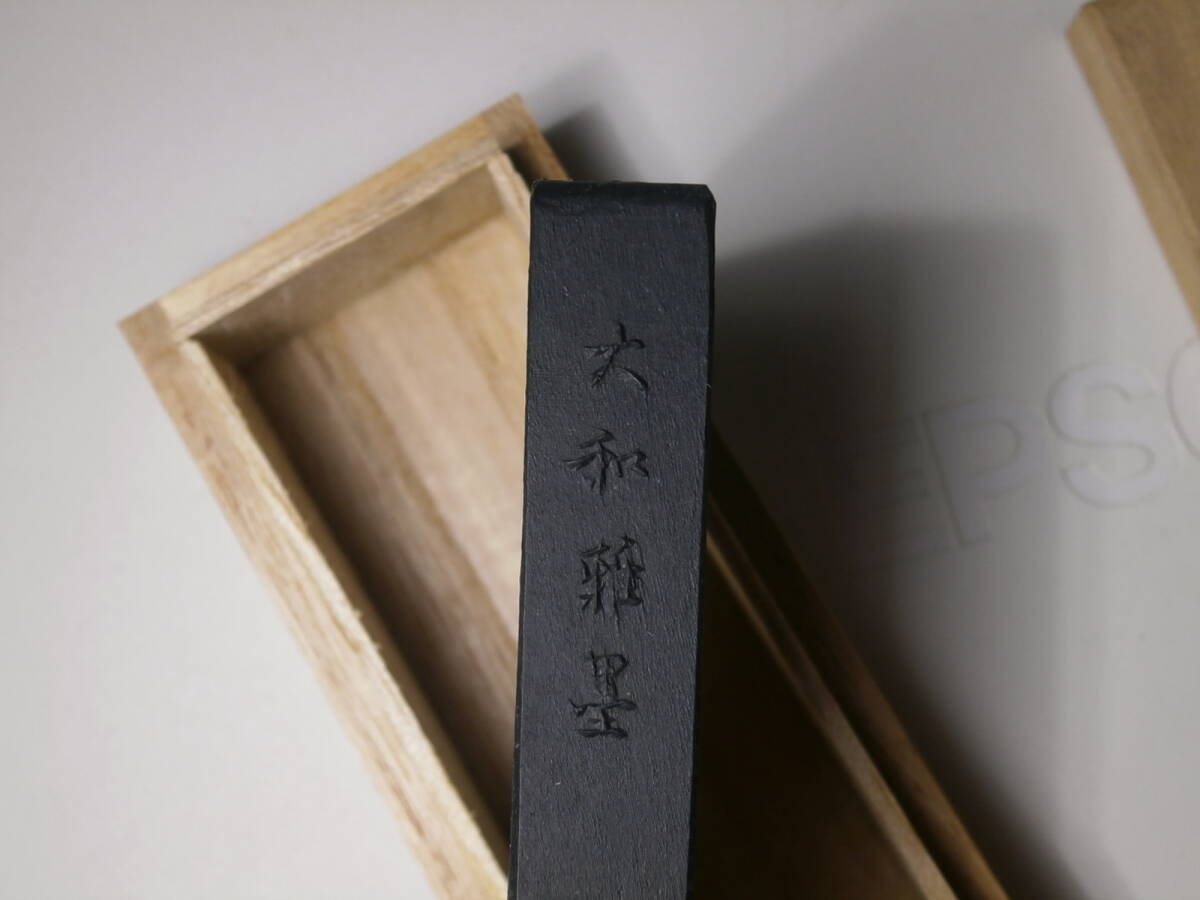 大和雅墨
EPSO